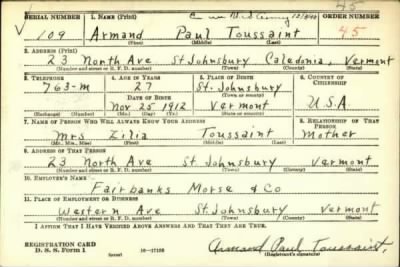 45
SERIAL NUMBER 1. NAME (Print) ORDER NUMBER
109 Armand Paul Toussaint 45
(First) (Middle) (Last)
2. ADDRESS (Print)
23 North Ave St. Johnsbury Caledonia, Vermont
(Number and street or R. F. D. number) (Town) (County) (State)
3. TELEPHONE 4. AGE IN YEARS 5. PLACE OF BIRTH 6. COUNTRY OF CITIZENSHIP
763-M 27 St. Johnsbury
DATE OF BIRTH (Town or county)
Nov 25 1912 Vermont U.S.A.
(Exchange) (Number) (Mo.) (Day) (Yr.) (State or country)
7. NAME OF PERSON WHO WILL ALWAYS KNOW YOUR ADDRESS 8. RELATIONSHIP OF THAT PERSON
Mrs Zilia Toussaint Mother
(Mr., Mrs., Miss) (First) (Middle) (Last)
9. ADDRESS OF THAT PERSON
23 North Ave St. Johnsbury Vermont
(Number and street or R. F. D. number) (Town) (County) (State)
10. EMPLOYER'S NAME
Fairbanks Morse & Co
11. PLACE OF EMPLOYMENT OR BUSINESS
Western Ave St. Johnsbury Vermont
(Number and street or R. F. D. number) (Town) (County) (State)
I AFFIRM THAT I HAVE VERIFIED ABOVE ANSWERS AND THAT THEY ARE TRUE.
REGISTRATION CARD
D. S. S. Form 1 (over) 16—17105 Armand Paul Toussaint
(Registrant's signature)